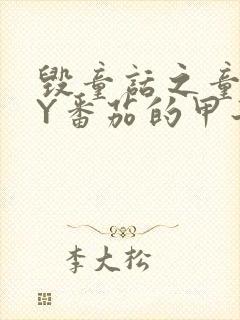 毁童话之童
Y番茄的甲
李大松